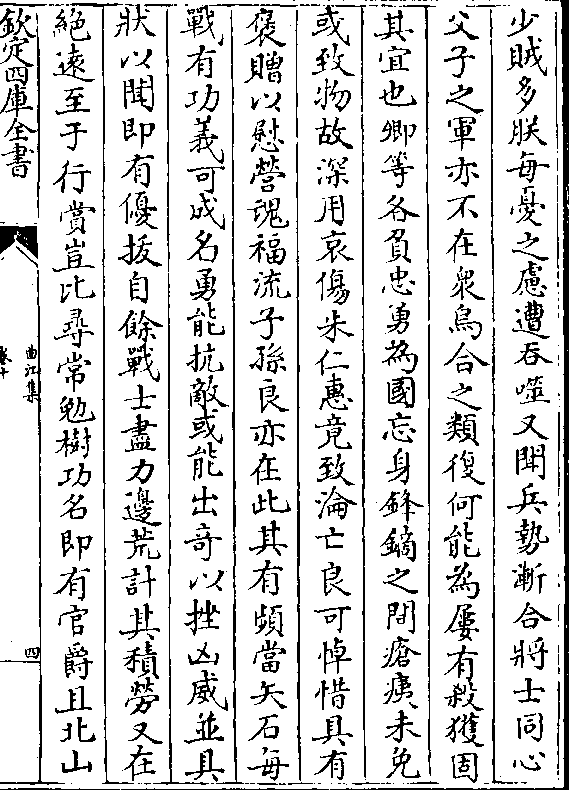 少賊多朕每憂之慮遭吞噬又聞兵勢漸合將士同心
父子之軍亦不在衆烏合之類復何能為屢有殺獲固
其宜也卿等各負忠勇為國忘身鋒鏑之間瘡痍未免
或致物故深用哀傷朱仁惠竟致淪亡良可悼惜具有
褒贈以慰營魂福流子孫良亦在此其有頻當矢石每
戰有功義可成名勇能抗敵或能出竒以挫凶威並具
狀以聞即有優拔自餘戰士盡力邊荒計其積勞又在
絕遠至于行賞豈比尋常勉樹功名即有官爵且北山
欽定四庫全書
曲江集
卷十
四